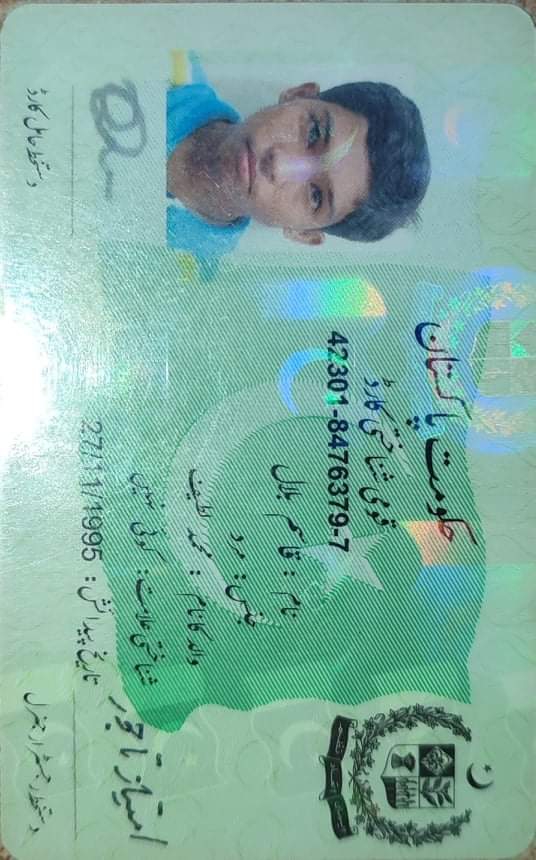 حکومت پاکستان
قومی شناختی کارڈ
42301-8476379-7
نام : قاسم بلال
جنس : مرد
والد کا نام : محمد لطیف
شناختی علامت : کوئی نہیں
تاریخ پیدائش : 27/11/1995
امتیاز تاجور
دستخط رجسٹرار جنرل
دستخط حامل کارڈ